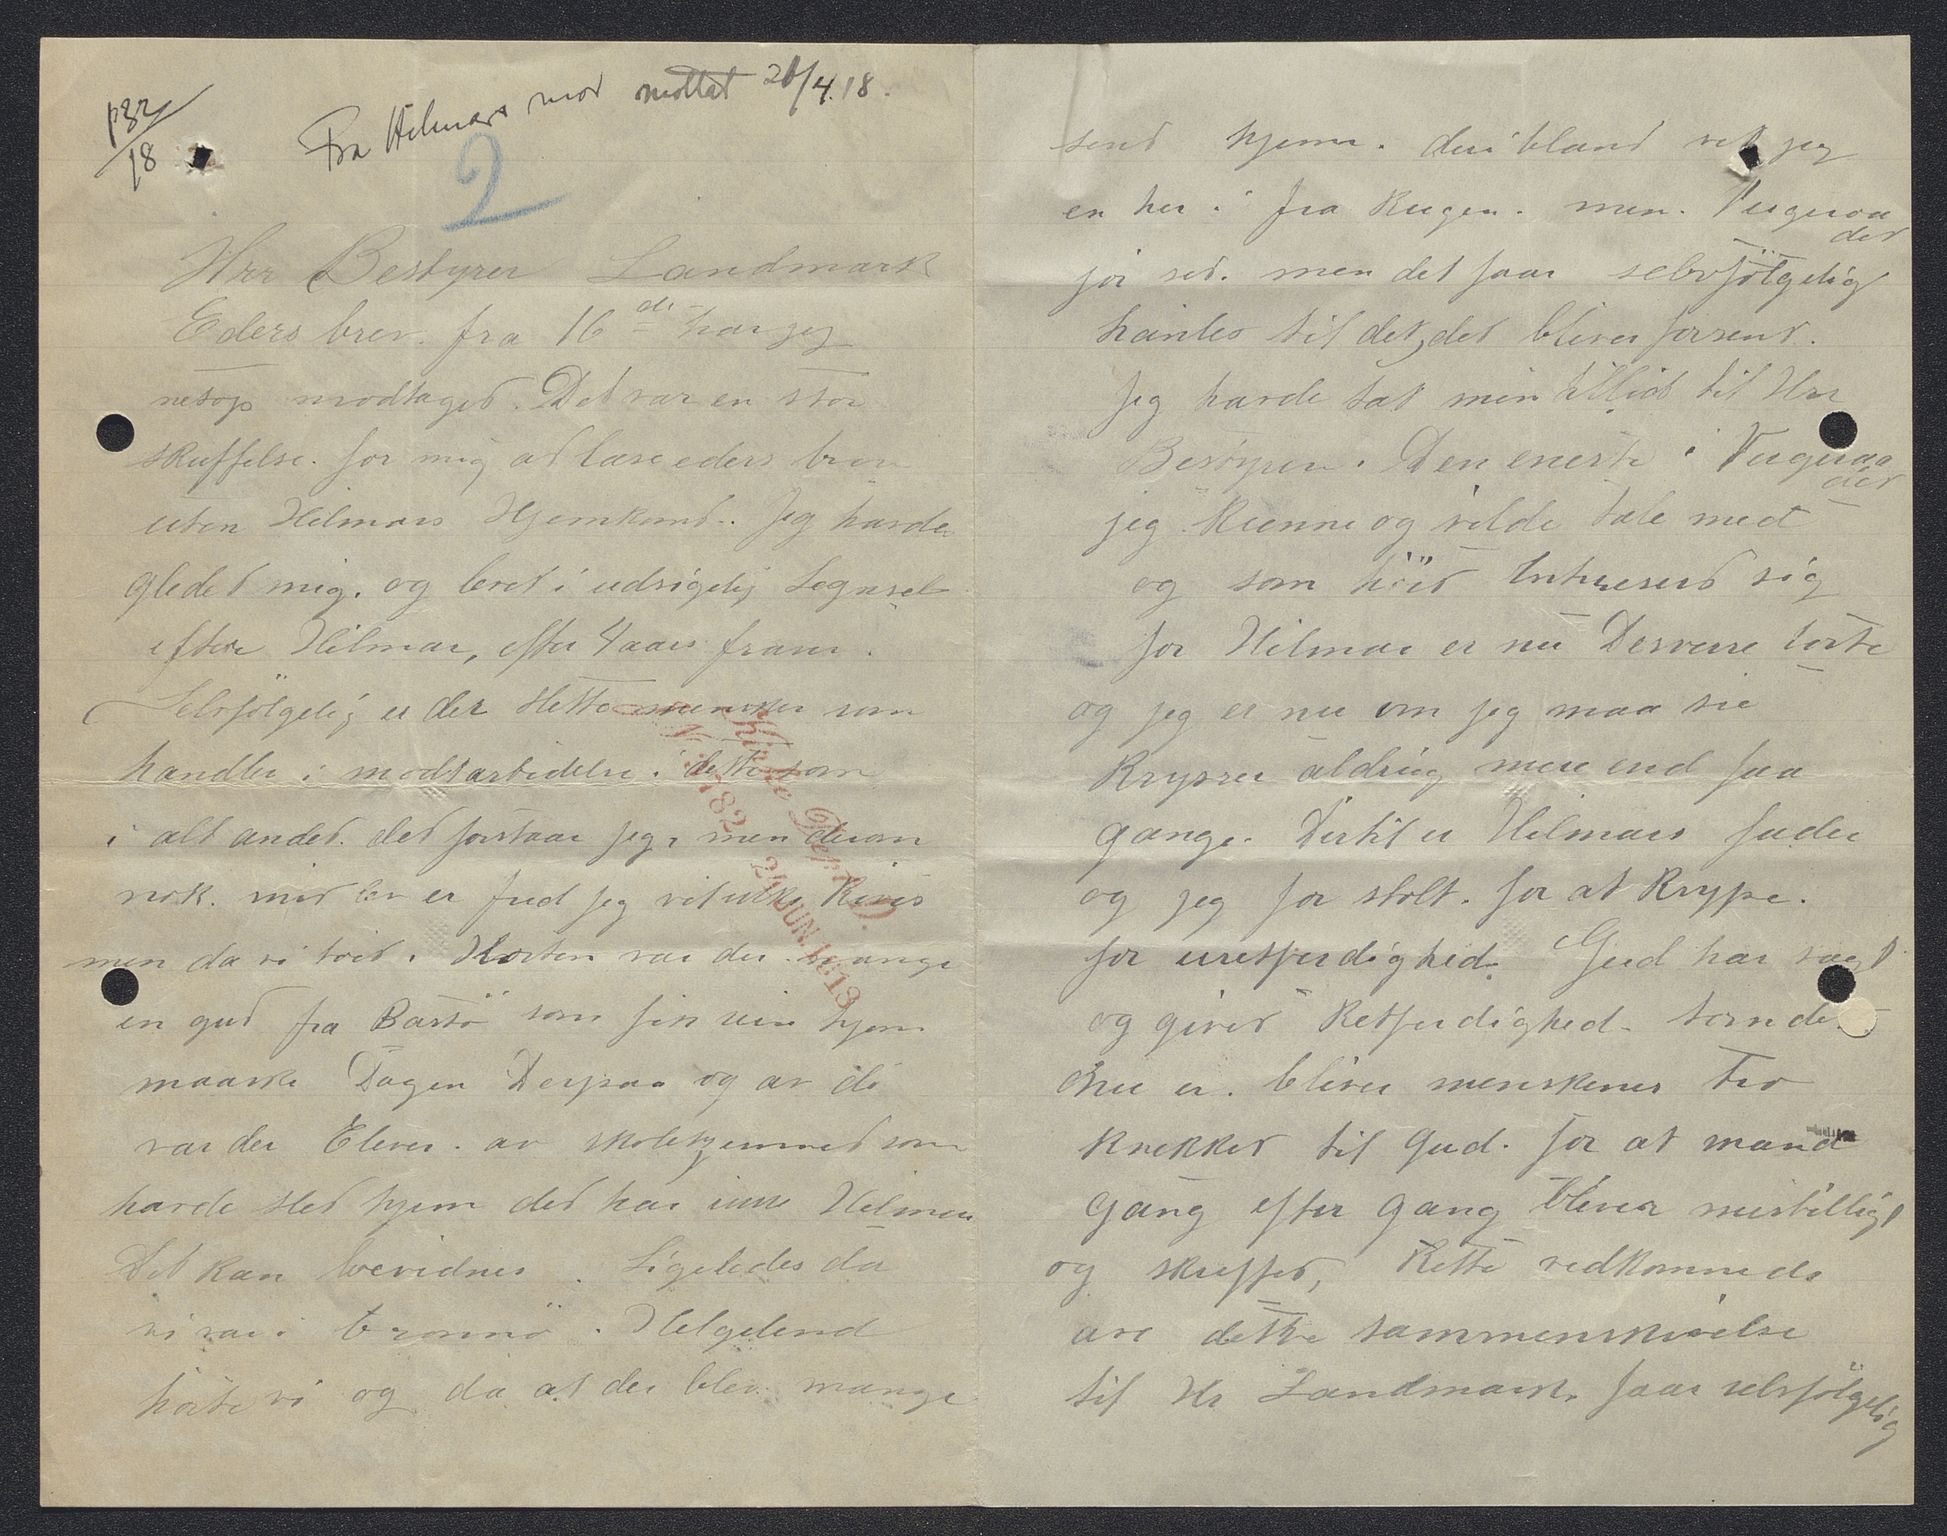 p 32/18
Fra Hilmars mor mottat 26/4.18.
2
Hrr Bestyrer Landmark
Eders brev. fra 16 de har jeg
netop modtaged. Det var en stor
skuffelse. for mig at læse eders brev
uten Hilmars Hjemkomst.. Jeg havde
gledet mig. og levet i udsigelig Legnsel
eftere Hilmar, efter 4 aars fravær.
Selvfölgelig er der slette mennsker som
handler i modtarbidelse. i dette som
i alt andet. det forstaar jeg, men derom
nok. mit brev er fuld jeg vet ikke
men da vi bode i Horten var der mange
en gut fra Bastö som fik reise hjem
maaske Dagen Derpaa og av de
var der Elever. av skolehjemmet som
havde sted hjem det har ikke Hilmar
Det kan bevidnes. Ligeledes da
vi var i Bronnö. Helgelend
hörte vi og da at der blev mange
Kirke Dep. D.
2 JUN. 1913
send hjem. deribland vet jeg
en her i fra Rugen. men. Vergeraa
det
for sed. men det faar selvfölgelig
hänles til det, det bliver forsent.
Jeg havde sat min tillid til Hrr
Bestyrer. Den eneste i Vergeraa
det
jeg kunne og vilde tale med
og som höit Intresserd sig
for Hilmar er nu Desverre borte
og jeg er nu om jeg maa sie
krysser aldrig mere end faa
gange. Dertil er Hilmars fader
og jeg for stolt. for at krype.
for uretferdighed. Gud har sagt
og giver Retferdighed. som det
nu er. bliver menskenes Tro
knekket til Gud. for at mand
gang efter gang bliver mistillligt
og skuffed, Rette vedkommeds
are dette sammenskrivelse
til Hr Landmark. faar selvfölgelig